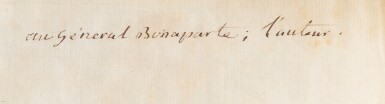 au Général Bonaparte; l'auteur.